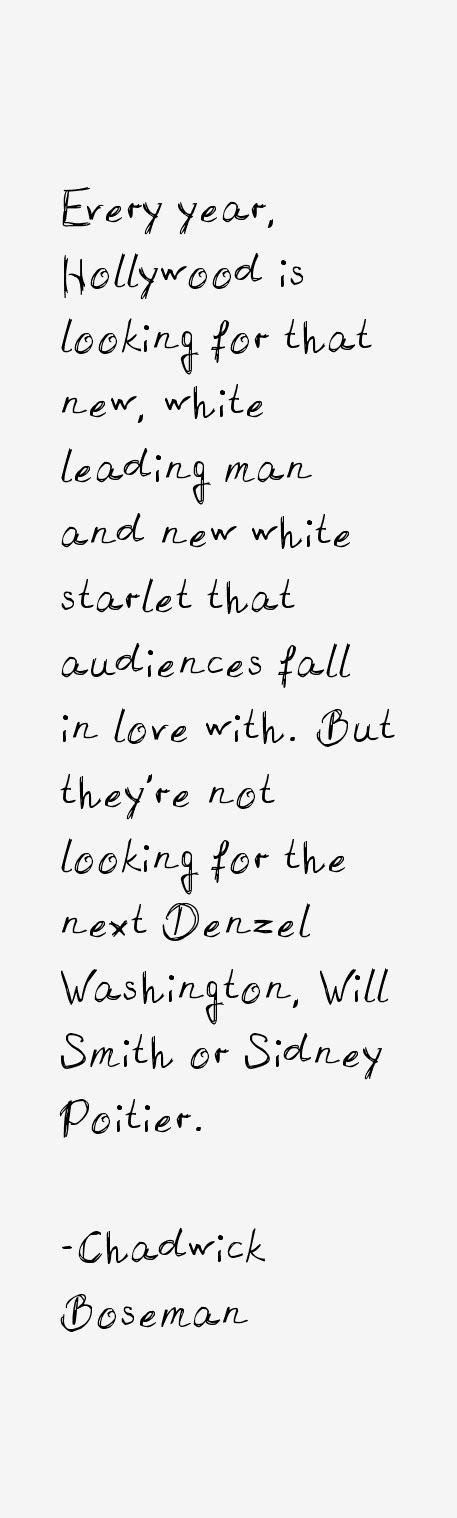 Every year,
Hollywood is
looking for that
new, white
leading man
and new white
starlet that
audiences fall
in love with. But
they're not
looking for the
next Denzel
Washington, Will
Smith or Sidney
Poitier.
-Chadwick
Boseman